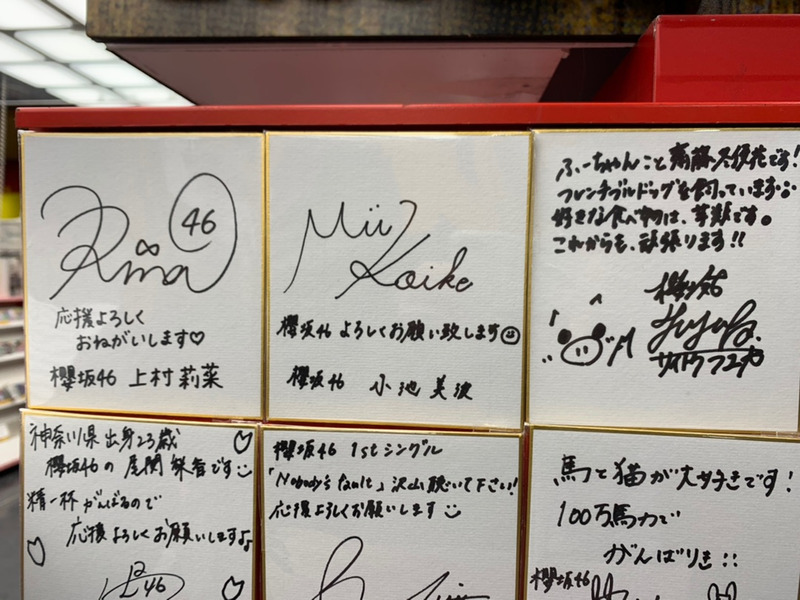 46
Rina
応援よろしく
おねがいします♡
櫻坂46 上村莉菜
Mii
Koike
櫻坂46 よろしくお願い致します
櫻坂46 小池美波
ふーちゃんこと齋藤冬優花です!
フレンチブルドッグを飼っています
好きな食べ物は、芋類です。
これからも、頑張ります!!
櫻坂46
サイトウフユカ
神奈川県出身23歳
櫻坂46の 尾関梨香です
精一杯がんばるので
応援よろしくお願いしますよ
46
櫻坂46 1stシングル
「Nobody's fault」沢山聴いて下さい!
応援よろしくお願いします
馬と猫が大好きです!
100万馬力で
がんばりき!!
櫻坂46